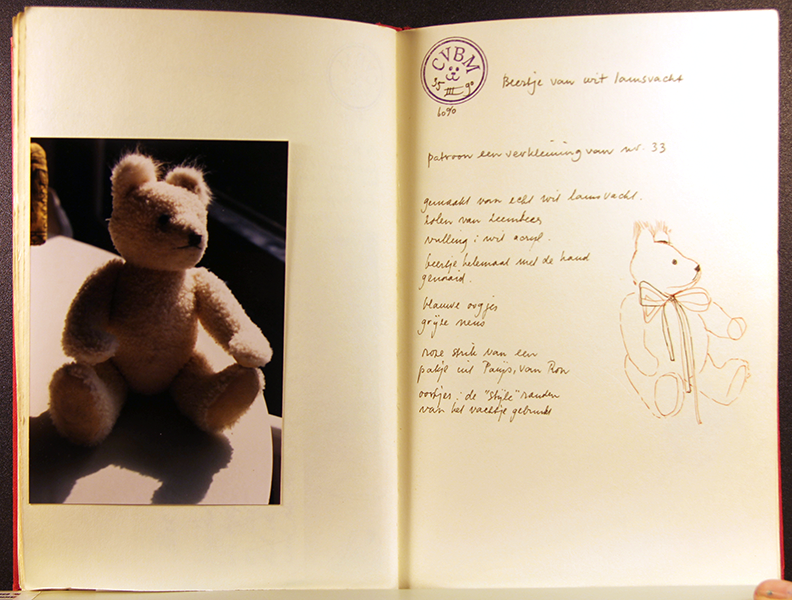 CVBM
35 III 90
60%
Beertje van wit lamsvacht
patroon een verkleining van nr. 33
gemaakt van echt wit lamsvacht.
zolen van zeembeer
vulling: wit acryl.
beertje helemaal met de hand
genaaid.
blauwe oogjes
grijze neus
roze strik van een
pakje uit Parijs, van Ron
oortjes: de "stijle" randen
van het vachtje gebruikt